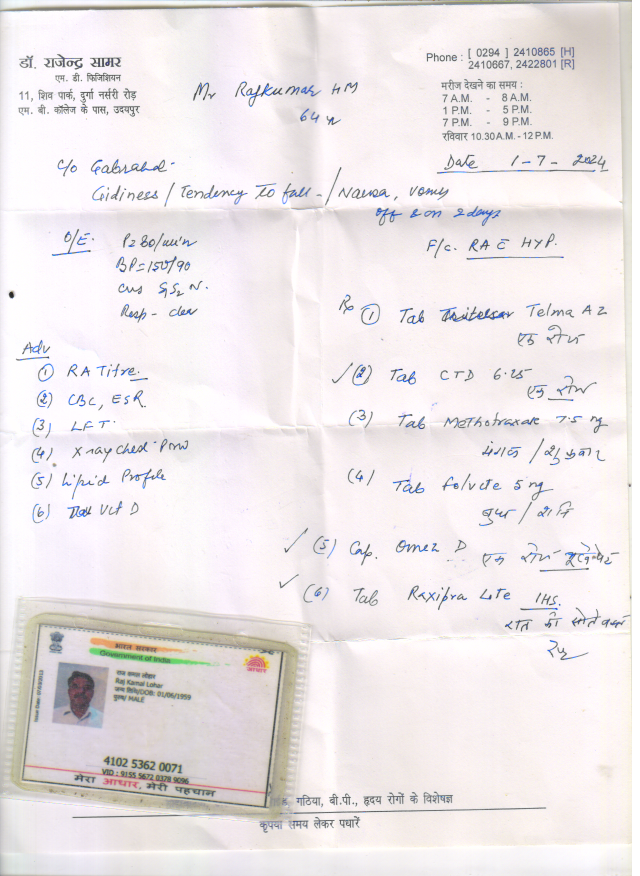 डॉ. राजेन्द्र सामर
एम. डी. फिजिशियन
11, शिव पार्क, दुर्गा नर्सरी रोड़
एम. बी. कॉलेज के पास, उदयपुर
Phone : [ 0294 ] 2410865 [H]
2410667, 2422801 [R]
मरीज देखने का समय :
7 A.M. - 8 A.M.
1 P.M. - 5 P.M.
7 P.M. - 9 P.M.
रविवार 10.30 A.M. - 12 P.M.
Mr Rajkumar HM
64
Date 1-7-2024
c/o
Gidiness / Tendency to fall - / Nausa, vomy
off & on 2 days
O/E.
P= 80/min
BP= 150/90
cvs S1S2 N.
Resp - clear
F/c. RA E HYP.
Adv
(1) RA Titre.
(2) CBC, ESR
(3) LFT
(4) Xray Chest
(5) Lipid Profile
(6) Vit D
Rx (1) Tab Telma A2
एक रोज
(2) Tab CTD 6.25
एक रोज
(3) Tab Methotraxate 7.5 mg
मंगल / शुक्रवार
(4) Tab Folvite 5 mg
बुध / शनि
(5) Cap. Omez D एक रोज
(6) Tab Lite 1HS.
रात को सोते वक्त
भारत सरकार
Government of India
आधार
राज कमल लोहार
Raj Kamal Lohar
जन्म तिथि/DOB: 01/06/1959
पुरुष/ MALE
4102 5362 0071
VID : 9155 5672 0378 9096
मेरा आधार, मेरी पहचान
गठिया, बी.पी., हृदय रोगों के विशेषज्ञ
कृपया समय लेकर पधारें